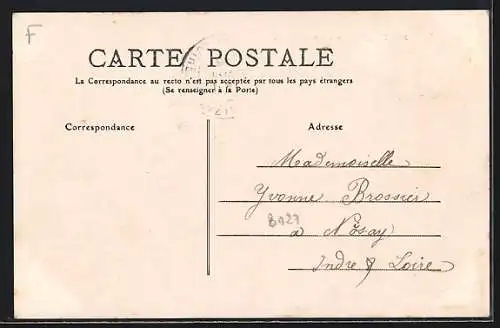 F
CARTE POSTALE
La Correspondance au recto n'est pas acceptée par tous les pays étrangers
(Se renseigner à la Poste)
Correspondance
Adresse
Mademoiselle
Yvonne Brossier
à Nosay
Indre & Loire